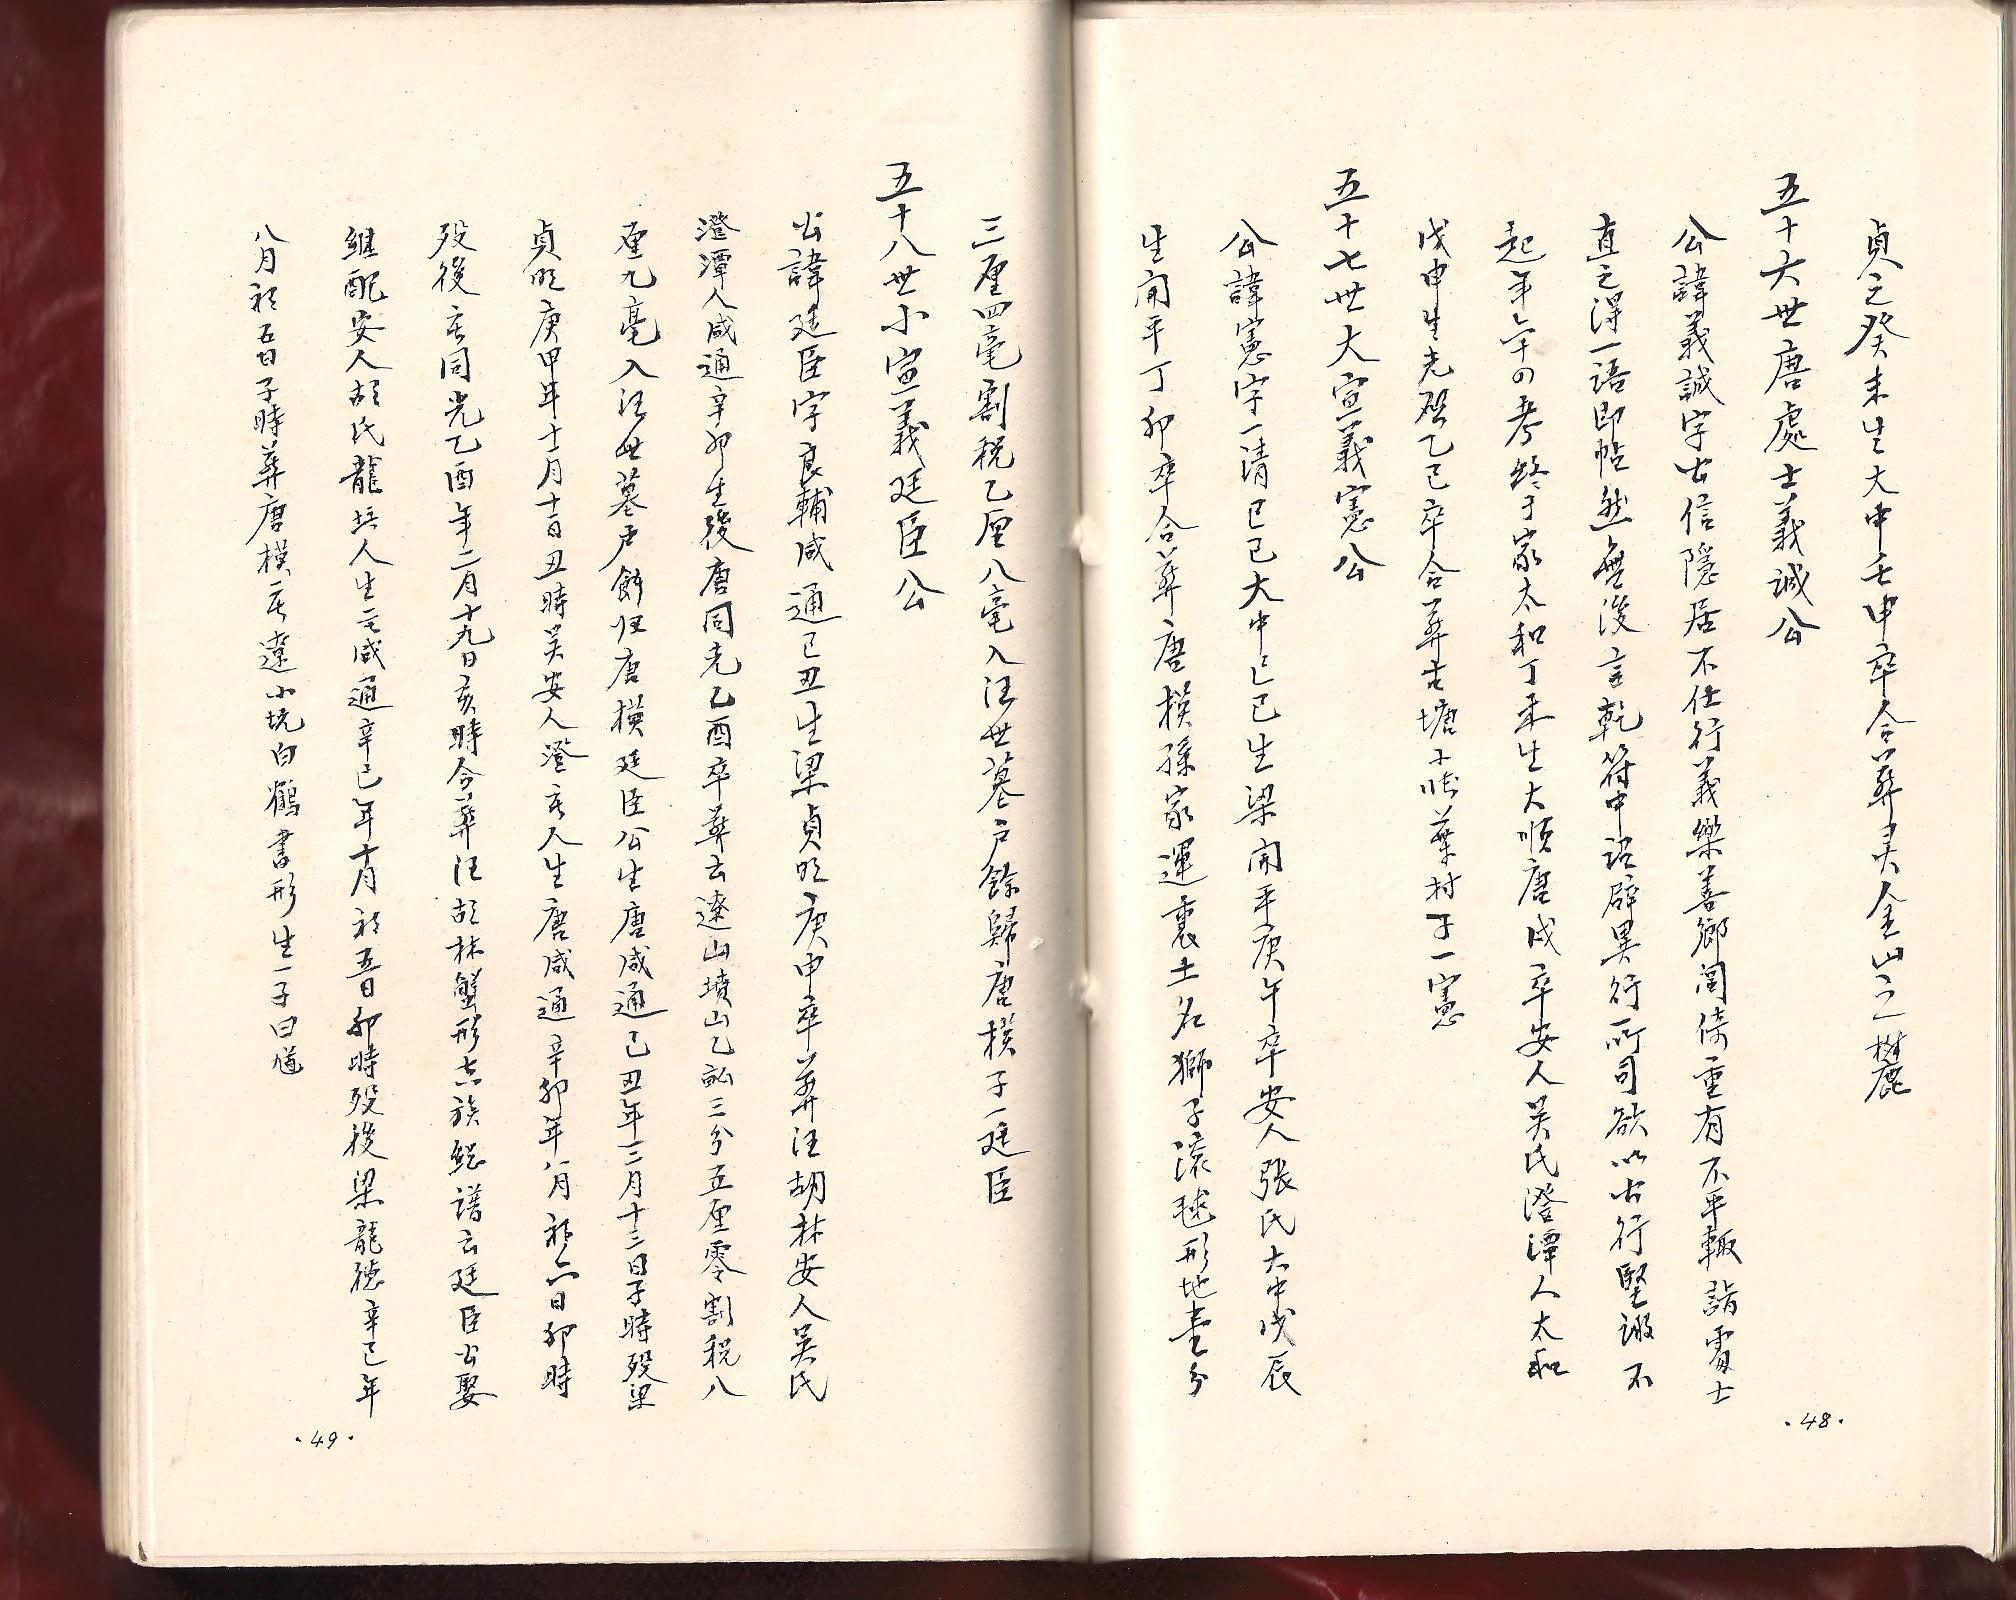 貞元癸未生大中壬申卒合葬灵金山之麓
五十六世唐處士義誠公
公諱義誠字古信隱居不仕行義樂善鄉閭倚重有不平輒詣賓士
直之得一語即帖然無後言乾符中詔辟異行所司欲以古行堅謝不
起年六十四考終于家太和丁未生大順庚戌卒安人吴氏澄潭人太和
戊申生光啓乙巳卒合葬古塘葉村子一憲
五十七世大宣義憲公
公諱憲字一清己巳大中己巳生梁開平庚午卒安人張氏大中戊辰
生開平丁卯卒合葬唐模孫家運裏土名獅子滚毬形地壹分
·48·
三厘四毫割税乙厘八毫入汪世墓户餘歸唐模子一廷臣
五十八世小宣義廷臣公
公諱廷臣字良輔咸通己丑生梁貞明庚申卒葬汪胡林安人吴氏
澄潭人咸通辛卯生後唐同光乙酉卒葬古遠山墳山乙畝三分五厘零割税八
厘九毫入汪世墓户餘归唐模廷臣公生唐咸通己丑年三月十三日子時殁梁
貞明庚申年十月十一日丑時吴安人澄人生唐咸通辛卯年八月初六日卯時
殁後唐同光乙酉年二月十九日亥時合葬汪胡林蟹形古族總譜云廷臣公娶
繼配安人胡氏龍培人生咸通辛巳年十月初五日卯時殁後梁龍德辛巳年
八月初五日子時葬唐模遠小坑白鶴書形生一子曰
·49·